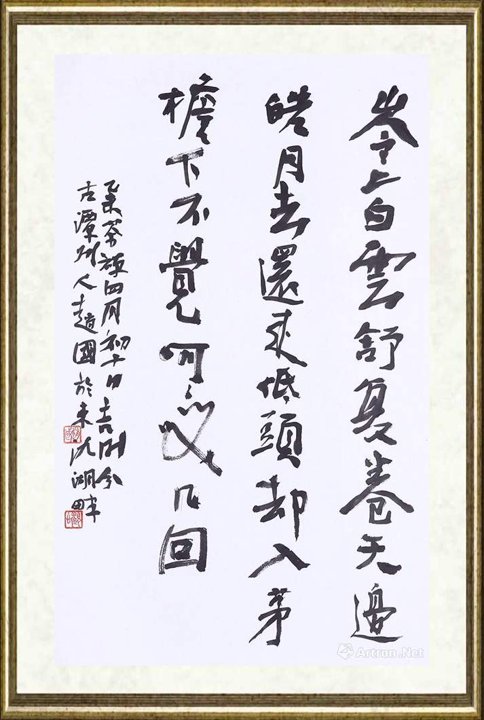 岺上白雲舒复卷天邊
皓月去還來低頭却入茅
檐下不覺呵々笑几回
乙未四月初十日吉時
古潭州人國於湖畔
Artron.Net